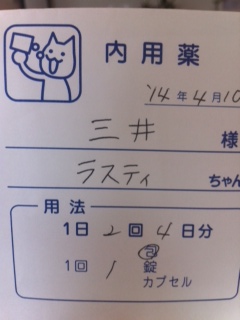 内用薬
'14年4月10
三井 様
ラスティ ちゃん
用法
1日 2 回 4 日分
1回 1 錠
カプセル